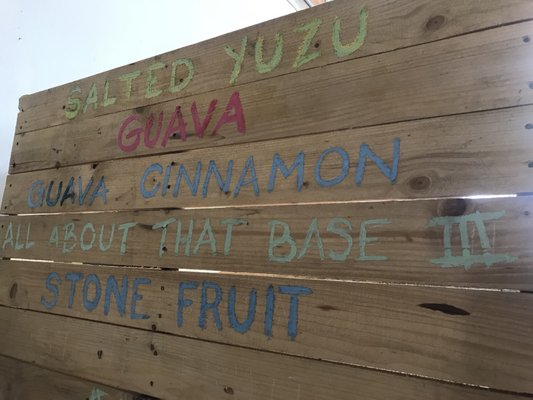 SALTED YUZU
GUAVA
GUAVA CINNAMON
All About THAt BASE III
STONE FRUIt